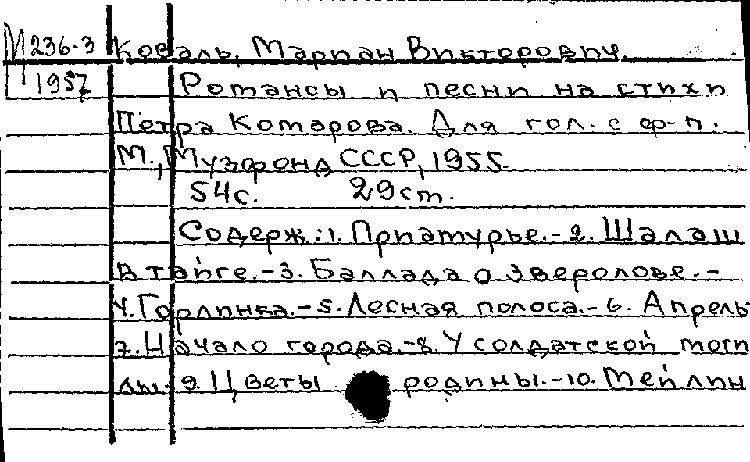 М 236-3 Коваль, Мариан Викторович.
1957 Романсы и песни на стихи
Петра Комарова. Для гол. с ф-п.
М., Музфонд СССР, 1955.
54с. 29ст.
Содерж.: 1. Приамурье.-2. Шалаш
в тайге.-3. Баллада о зверолове.-
4. Горлинка.-5. Лесная полоса.-6. Апрель
7. Начало города.-8. У солдатской моги
лы.-9. Цветы родины.-10. Мейлин